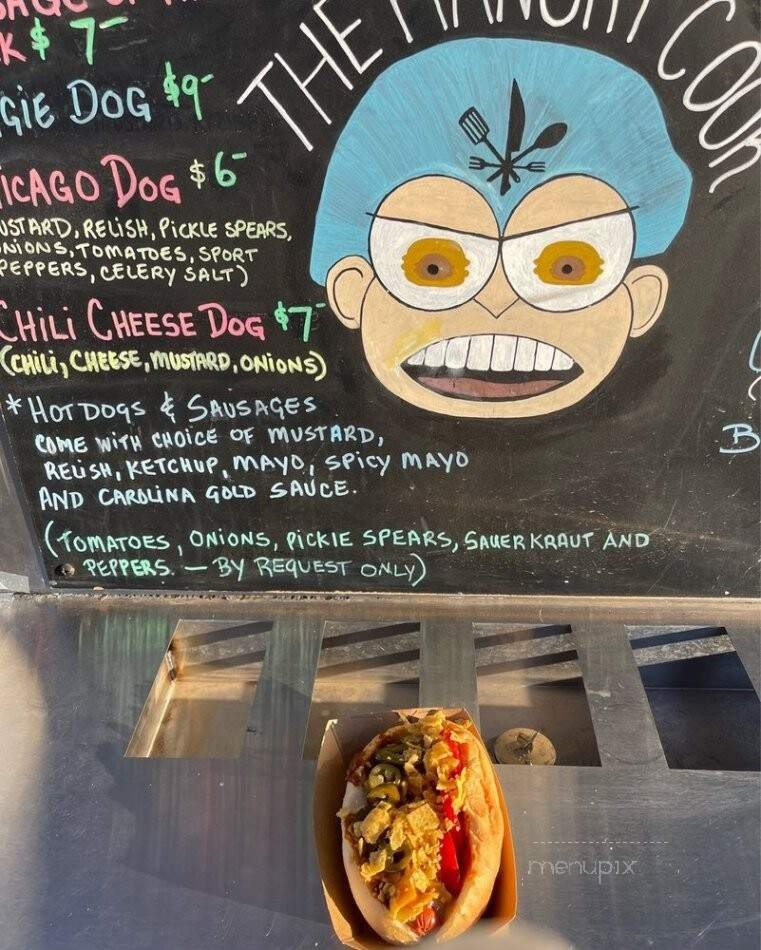 K $7-
GIE DOG $9-
ICAGO DOG $6-
USTARD, RELISH, PICKLE SPEARS,
NIONS, TOMATOES, SPORT
PEPPERS, CELERY SALT)
CHILI CHEESE DOG $7-
(CHILI, CHEESE, MUSTARD, ONIONS)
* HOT DOGS & SAUSAGES
COME WITH CHOICE OF MUSTARD,
RELISH, KETCHUP, MAYO, SPICY MAYO
AND CAROLINA GOLD SAUCE.
(TOMATOES, ONIONS, PICKIE SPEARS, SAUERKRAUT AND
PEPPERS. — BY REQUEST ONLY)
THE
COOK
B
menupix